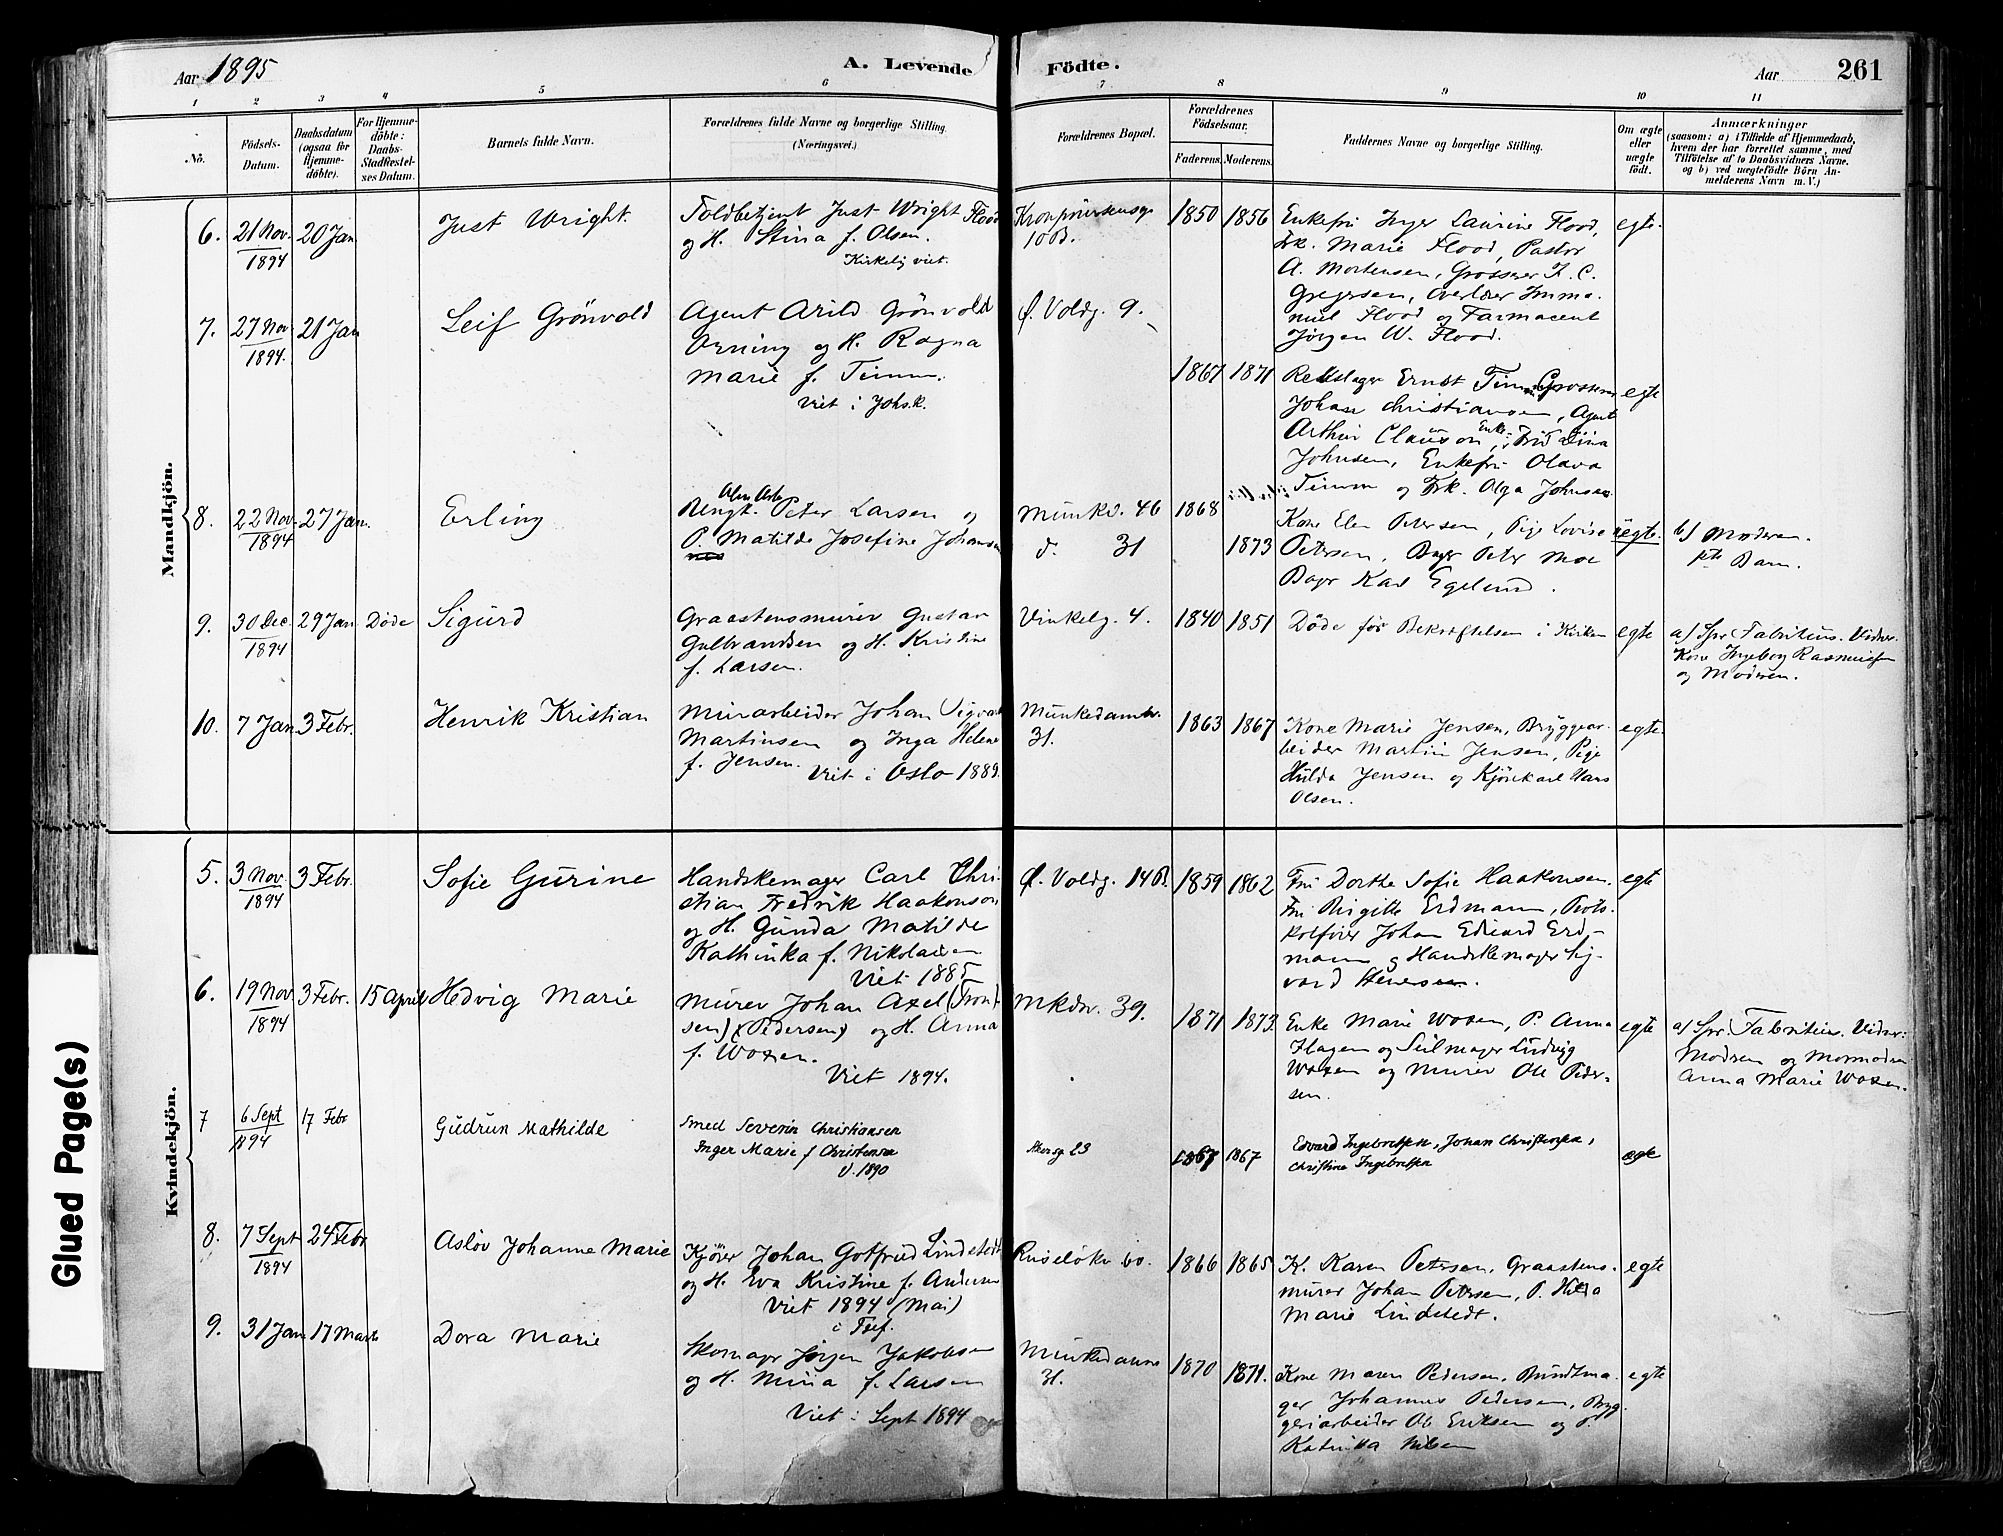 Aar 1895
A. Levende Födte.
Aar
261
1 2 3 4 5 6 7 8 9 10 11
No.
Födsels-Datum.
Daabsdatum (ogsaa for Hjemme-döbte).
For Hjemme-döbte: Daabs-Stadfæstel-ses Datum.
Barnets fulde Navn.
Forældrenes fulde Navne og borgerlige Stilling.
(Næringsvei.)
Forældrenes Bopæl.
Forældrenes Födselsaar.
Faderens. Moderens.
Faddernes Navne og borgerlige Stilling.
Om ægte eller uægte födt.
Anmærkninger
(saasom: a) i Tilfælde af Hjemmedaab,
hvem der har forrettet samme, med
Tilföielse af to Daabsvidners Navne.
og b) ved uægtefödte Börn An-
melderens Navn m. V.)
Mandkjön.
6. 21 Nov. 1894 20 Jan Just Wright.
Toldbetjent Just Wright Flood
og H. Stina f. Olsen.
Kirkelig viet.
Kronprinsensg
10B.
1850 1856
Enkefru Inger Laurine Flood,
Frk. Marie Flood, Pastor
A. Mortensen, Grosserer F. C.
Gregersen, Overlærer Imma-
nuel Flood og Farmaceut
Jörgen W. Flood.
egte.
7. 27 Nov 1894. 21 Jan Leif Grönvold
Agent Arild Grönvold
Orning og H. Ragna
Marie f. Timm.
Viet i Johs.k.
Ø. Voldg. 9.
1867 1871
Rebslager Ernst Timm, Grosserer
Johan Christiansen, Agent
Arthur Clauson, Enkefru Lina
Johnsen, Enkefru Olava
Timm og Frk. Olga Johnsen.
egte
8. 22 Nov. 1894 27 Jan. Erling
Ungk. Peter Larsen og
P. Matilde Josefine Johansen
Munkd. 46
d. 31
1868
1873
Kone Elen Petersen, Pige Lovise
Petersen, Bager Peter Moe
Bager Karl Egelund.
uegte.
b) Moderen.
Barn.
9. 30 Dec. 1894 29 Jan Döde Sigurd
Graastensmurer Gustav
Gulbrandsen og H. Kristine
f. Larsen.
Vinkelg. 4.
1840 1851
Döde för Bekræftelsen i Kirken
egte
a) Spr. Fabritius. Vidner:
Kone Ingeborg Rasmussen
og Moderen.
10. 7 Jan 3 Febr. Henrik Kristian
Murarbeider Johan Sigvart
Martinsen og Inga Helene
f. Jensen. Viet i Oslo 1889.
Munkedamsv.
31.
1863 1867
Kone Marie Jensen, Bryggear-
beider Martin Jensen, Pige
Hulda Jensen og Kjörekarl Hans
Olsen.
egte
Kvindekjön.
5. 3 Nov. 1894 3 Febr. Sofie Gurine
Handskemager Carl Chri-
stian Fredrik Haakonsen
og H. Gunda Matilde
Kathinka f. Nikolaisen
Viet 1885
Ø. Voldg. 14B.
1859 1862
Fru Dorthe Sofie Haakonsen.
Fru Birgitte Erdmann, Proto-
kolförer Johan Edvard Erd-
mann og Handskemager Sig-
vard
egte
6. 19 Nov 1894 3 Febr. 15 April Hedvig Marie
Murer Johan Axel (Tron-
sen) (Pedersen) og H. Anna
f. Woxen.
Viet 1894.
Mkdv. 39.
1871 1873
Enke Marie Woxen, P. Anna
Hagen og Seilmager Ludvig
Woxen og Murer Ole Peder-
sen.
egte
a) Spr. Fabritius. Vidner:
Modren og Mormodren
Anna Marie Woxen.
7 6 Sept 1894 17 Febr Gudrun Mathilde
Smed Severin Christiansen
Inger Marie f Christensen
V. 1890
Akersg 23
1867 1867
Edvard Ingebretsen, Johan Christensen,
Christine Ingebretsen
ægte
8. 7 Sept 1894 24 Febr Aslöv Johanne Marie
Kjörer Johan Gotfried Lindstedt
og H. Eva Kristine f. Andersen
Viet 1894 (Mai)
i Tref.
Ruselökv 60.
1866 1865
K. Karen Petersen, Graastens-
murer Johan Petersen, P. Hilda
Marie Lindstedt.
egte
9. 31 Jan 17 Marts Dora Marie
Skomager Jörgen Jakobsen
og H. Mina f. Larsen
Viet i Sept 1894
Munkedamsv
31.
1870 1871.
Kone Maren Pedersen, Buntma-
ger Johannes Pedersen, Bryg-
geriarbeider Ole Eriksen og P.
Katinka Nilsen
egte
Glued Page(s)